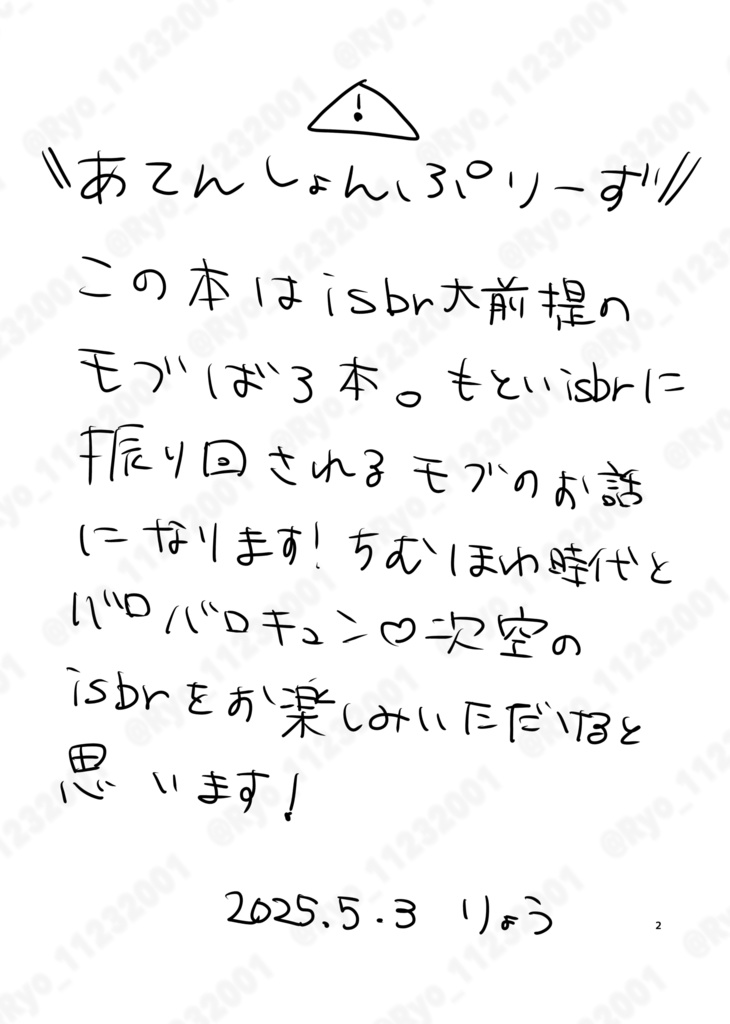 !
\\あてんしょん、ぷりーず//
この本はisbr大前提の
モブばろ本。もといisbrに
振り回されるモブのお話
になります!ちむほわ時代と
バロバロキュン♡次空の
isbrをお楽しみいただけると
思います!
2025.5.3 りょう
2
@Ryo_11232001